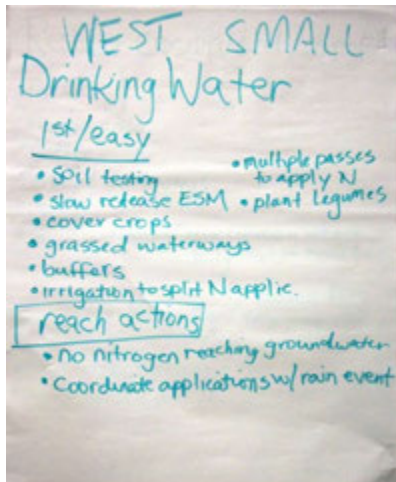 WEST SMALL
Drinking Water
1st/easy
• Soil testing
• slow release ESM
• cover crops
• grassed waterways
• buffers
• irrigation to split N applic.
• multiple passes
to apply N
• plant legumes
reach actions
• no nitrogen reaching groundwater
• Coordinate applications w/ rain event